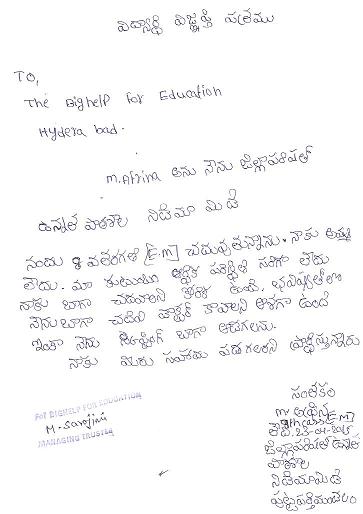 విద్యార్థి విజ్ఞప్తి పత్రము
TO,
The Bighelp For Education
Hydera bad.
M. Afrina అను నేను జిల్లాపరిషత్
ఉన్నత పాఠశాల నిడిమామిడి
నందు 8 వతరగతి [E.M] చదువుతున్నాను. నాకు అమ్మ
లేదు. మా కుటుంబ ఆర్థిక పరిస్థితి సరిగా లేదు
నాకు బాగా చదవాలని కోరిక ఉంది. భవిష్యత్ లో
నేను బాగా చదివి డాక్టర్ కావాలని ఆశగా ఉంది
ఇంకా నేను బాగా ఆడగలను.
నాకు మీరు సహాయ పడగలరని ప్రార్థిస్తున్నాను
సంతకం
FOR BIGHELP FOR EDUCATION
M. Sarojini
MANAGING TRUSTEE
8th class [E.M]
తేది. 23-04-2015
జిల్లాపరిషత్ ఉన్నత
పాఠశాల
నిడిమామిడి
పుట్టపర్తిమండలం